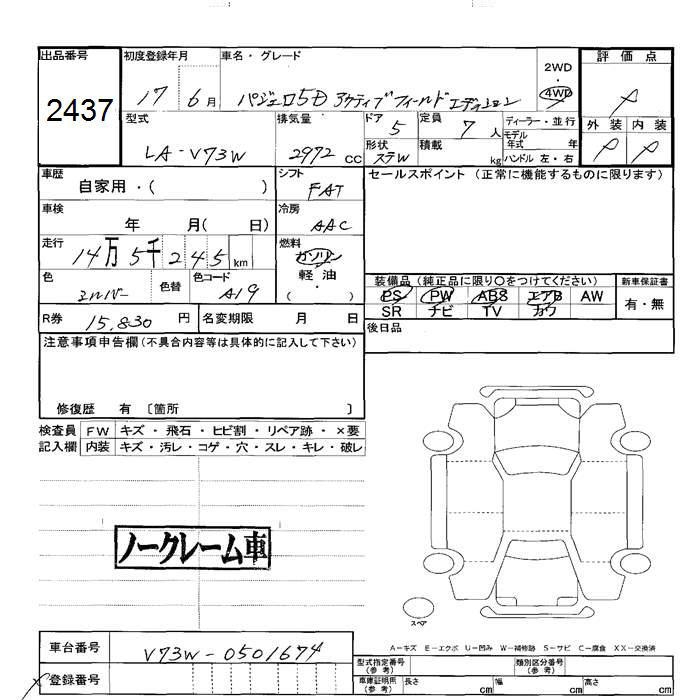 出品番号 初度登録年月 車名・グレード 2WD 評価点
2437 17 6月 パジェロ5D アクティブフィールドエディション 4WD
型式 排気量 ドア 定員 ディーラー・並行 外装 内装
LA-V73W 2972 CC 5 7 人 モデル年式 年
形状 ステW 積載 kg ハンドル 左・右
車歴 シフト セールスポイント (正常に機能するものに限ります)
自家用・( ) FAT
車検 冷房
年 月( 日) AAC
走行 燃料
14万5千245km ガソリン
軽油
( )
色 シルバー 色替 色コード A19
装備品 (純正品に限り○をつけてください) 新車保証書
PS PW ABS エアB AW 有・無
SR ナビ TV カワ
R券 15,830 円 名変期限 月 日
後日品
注意事項申告欄(不具合内容等は具体的に記入して下さい)
修復歴 有 〔箇所 〕
検査員 FW キズ・飛石・ヒビ割・リペア跡・×要
記入欄 内装 キズ・汚レ・コゲ・穴・スレ・キレ・破レ
ノークレーム車
スペア
A-キズ E-エクボ U-凹み W-補修跡 S-サビ C-腐食 XX-交換済
車台番号 V73W-0501674
型式指定番号(参考) 類別区分番号(参考)
登録番号
車庫証明用(参考) 長さ cm 幅 cm 高さ cm